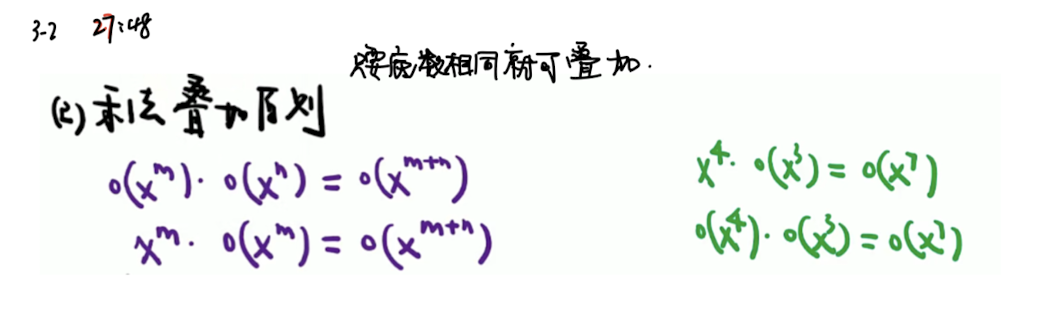 3-2 27:48
只要底数相同就可叠加.
(2) 乘法叠加原则
o(x^m)·o(x^n)=o(x^{m+n})
x^4·o(x^3)=o(x^7)
x^m·o(x^m)=o(x^{m+n})
o(x^4)·o(x^3)=o(x^7)